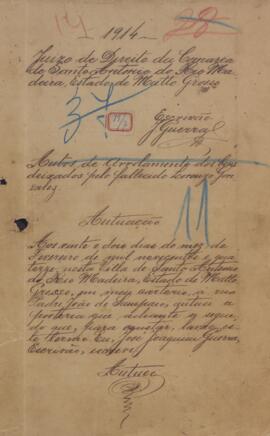 14 1914 28
Juizo de Direito da Comarca
de Santo Antonio do Rio Ma-
deira, Estado de Matto Grosso
37
Escrivão
J Guerra
Autos de Arrolamento dos bens
deixados pelo fallecido Lourenço Gon-
zales.
11
Autuação
Aos vinte e dois dias do mez de
Fevereiro de mil novecentos e qua-
torze, nesta Villa de Santo Antonio
do Rio Madeira, Estado de Matto
Grosso, em meu cartorio, a rua
Padre João de Sampaio, autuei a
portaria que adiante se segue,
do que, para constar, lavro es-
te termo. Eu, José Joaquim Guerra,
Escrivão, escrevi
Autuei